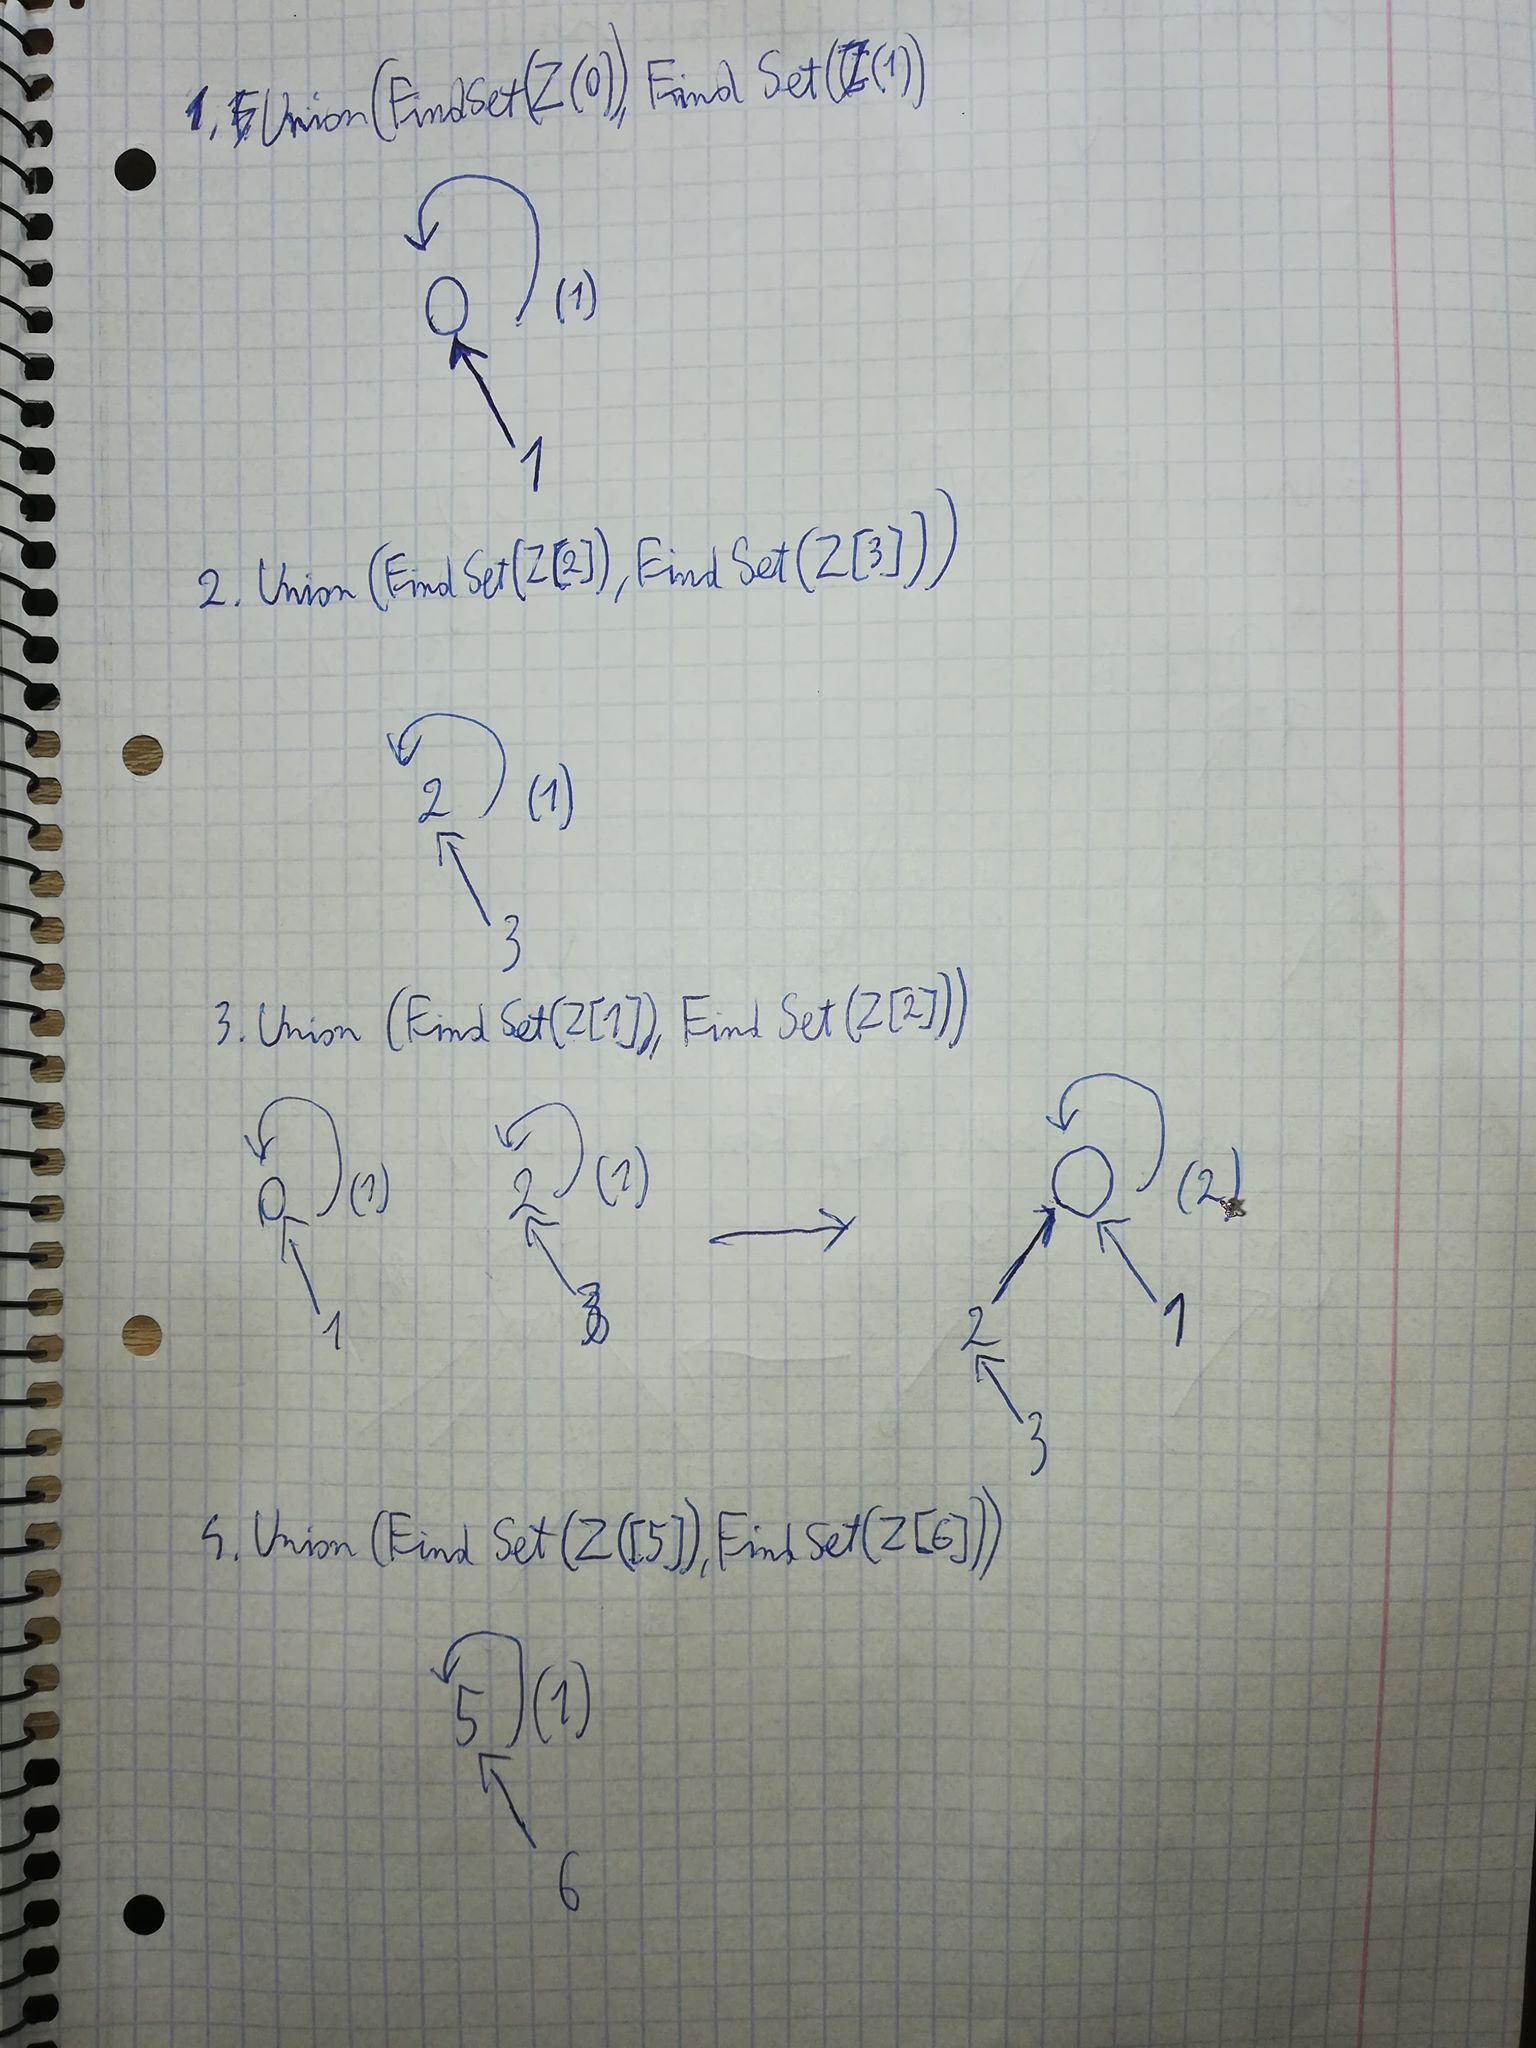 1. Union(FindSet(Z(0)), Find Set(Z(1))
0 (1)
1
2. Union (Find Set(Z[2]), Find Set(Z[3])))
2 (1)
3
3. Union (Find Set(Z[1]), Find Set(Z[2])))
0 (1) 2 (1) 0 (2)
1 3 2 1
3
4. Union (Find Set(Z([5]), Find Set(Z[6])))
5 (1)
6